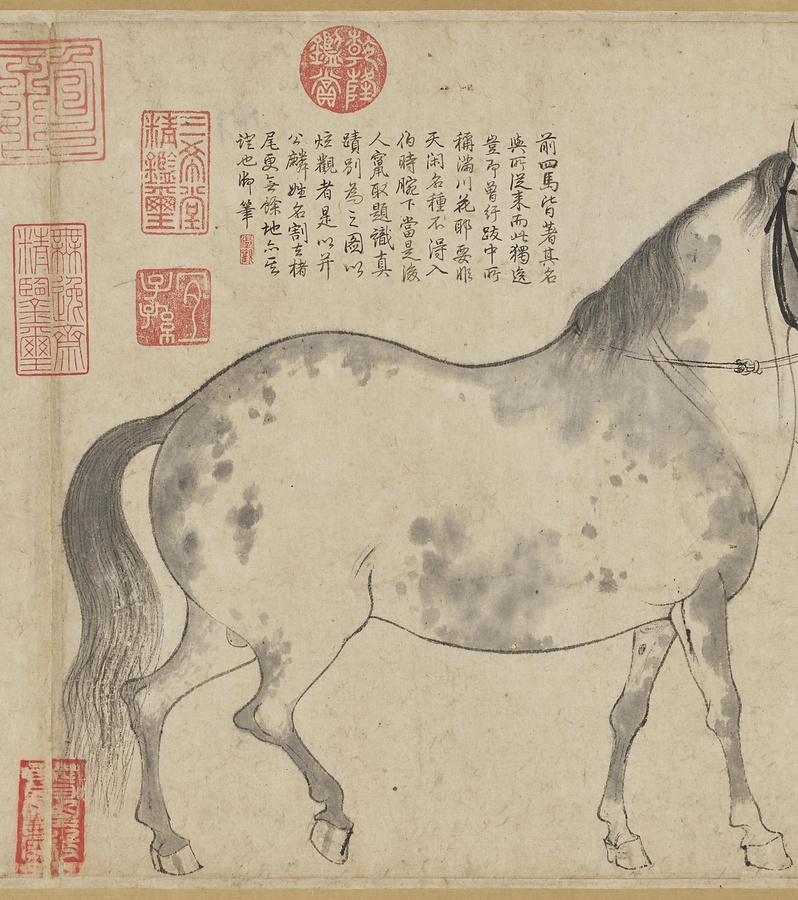 乾隆鑑賞
前四馬皆著其名
與所從來而此獨逸
豈即曾紆跋中所
稱滿川花耶要非
天閑名種不得入
伯時腕下當是後
人竄取題識真
蹟別為之圖以
炫觀者是以并
公麟姓名割去楮
尾更無餘地亦其
證也御筆
三希堂
精鑑璽
宜子孫
無逸齋
精鑒璽